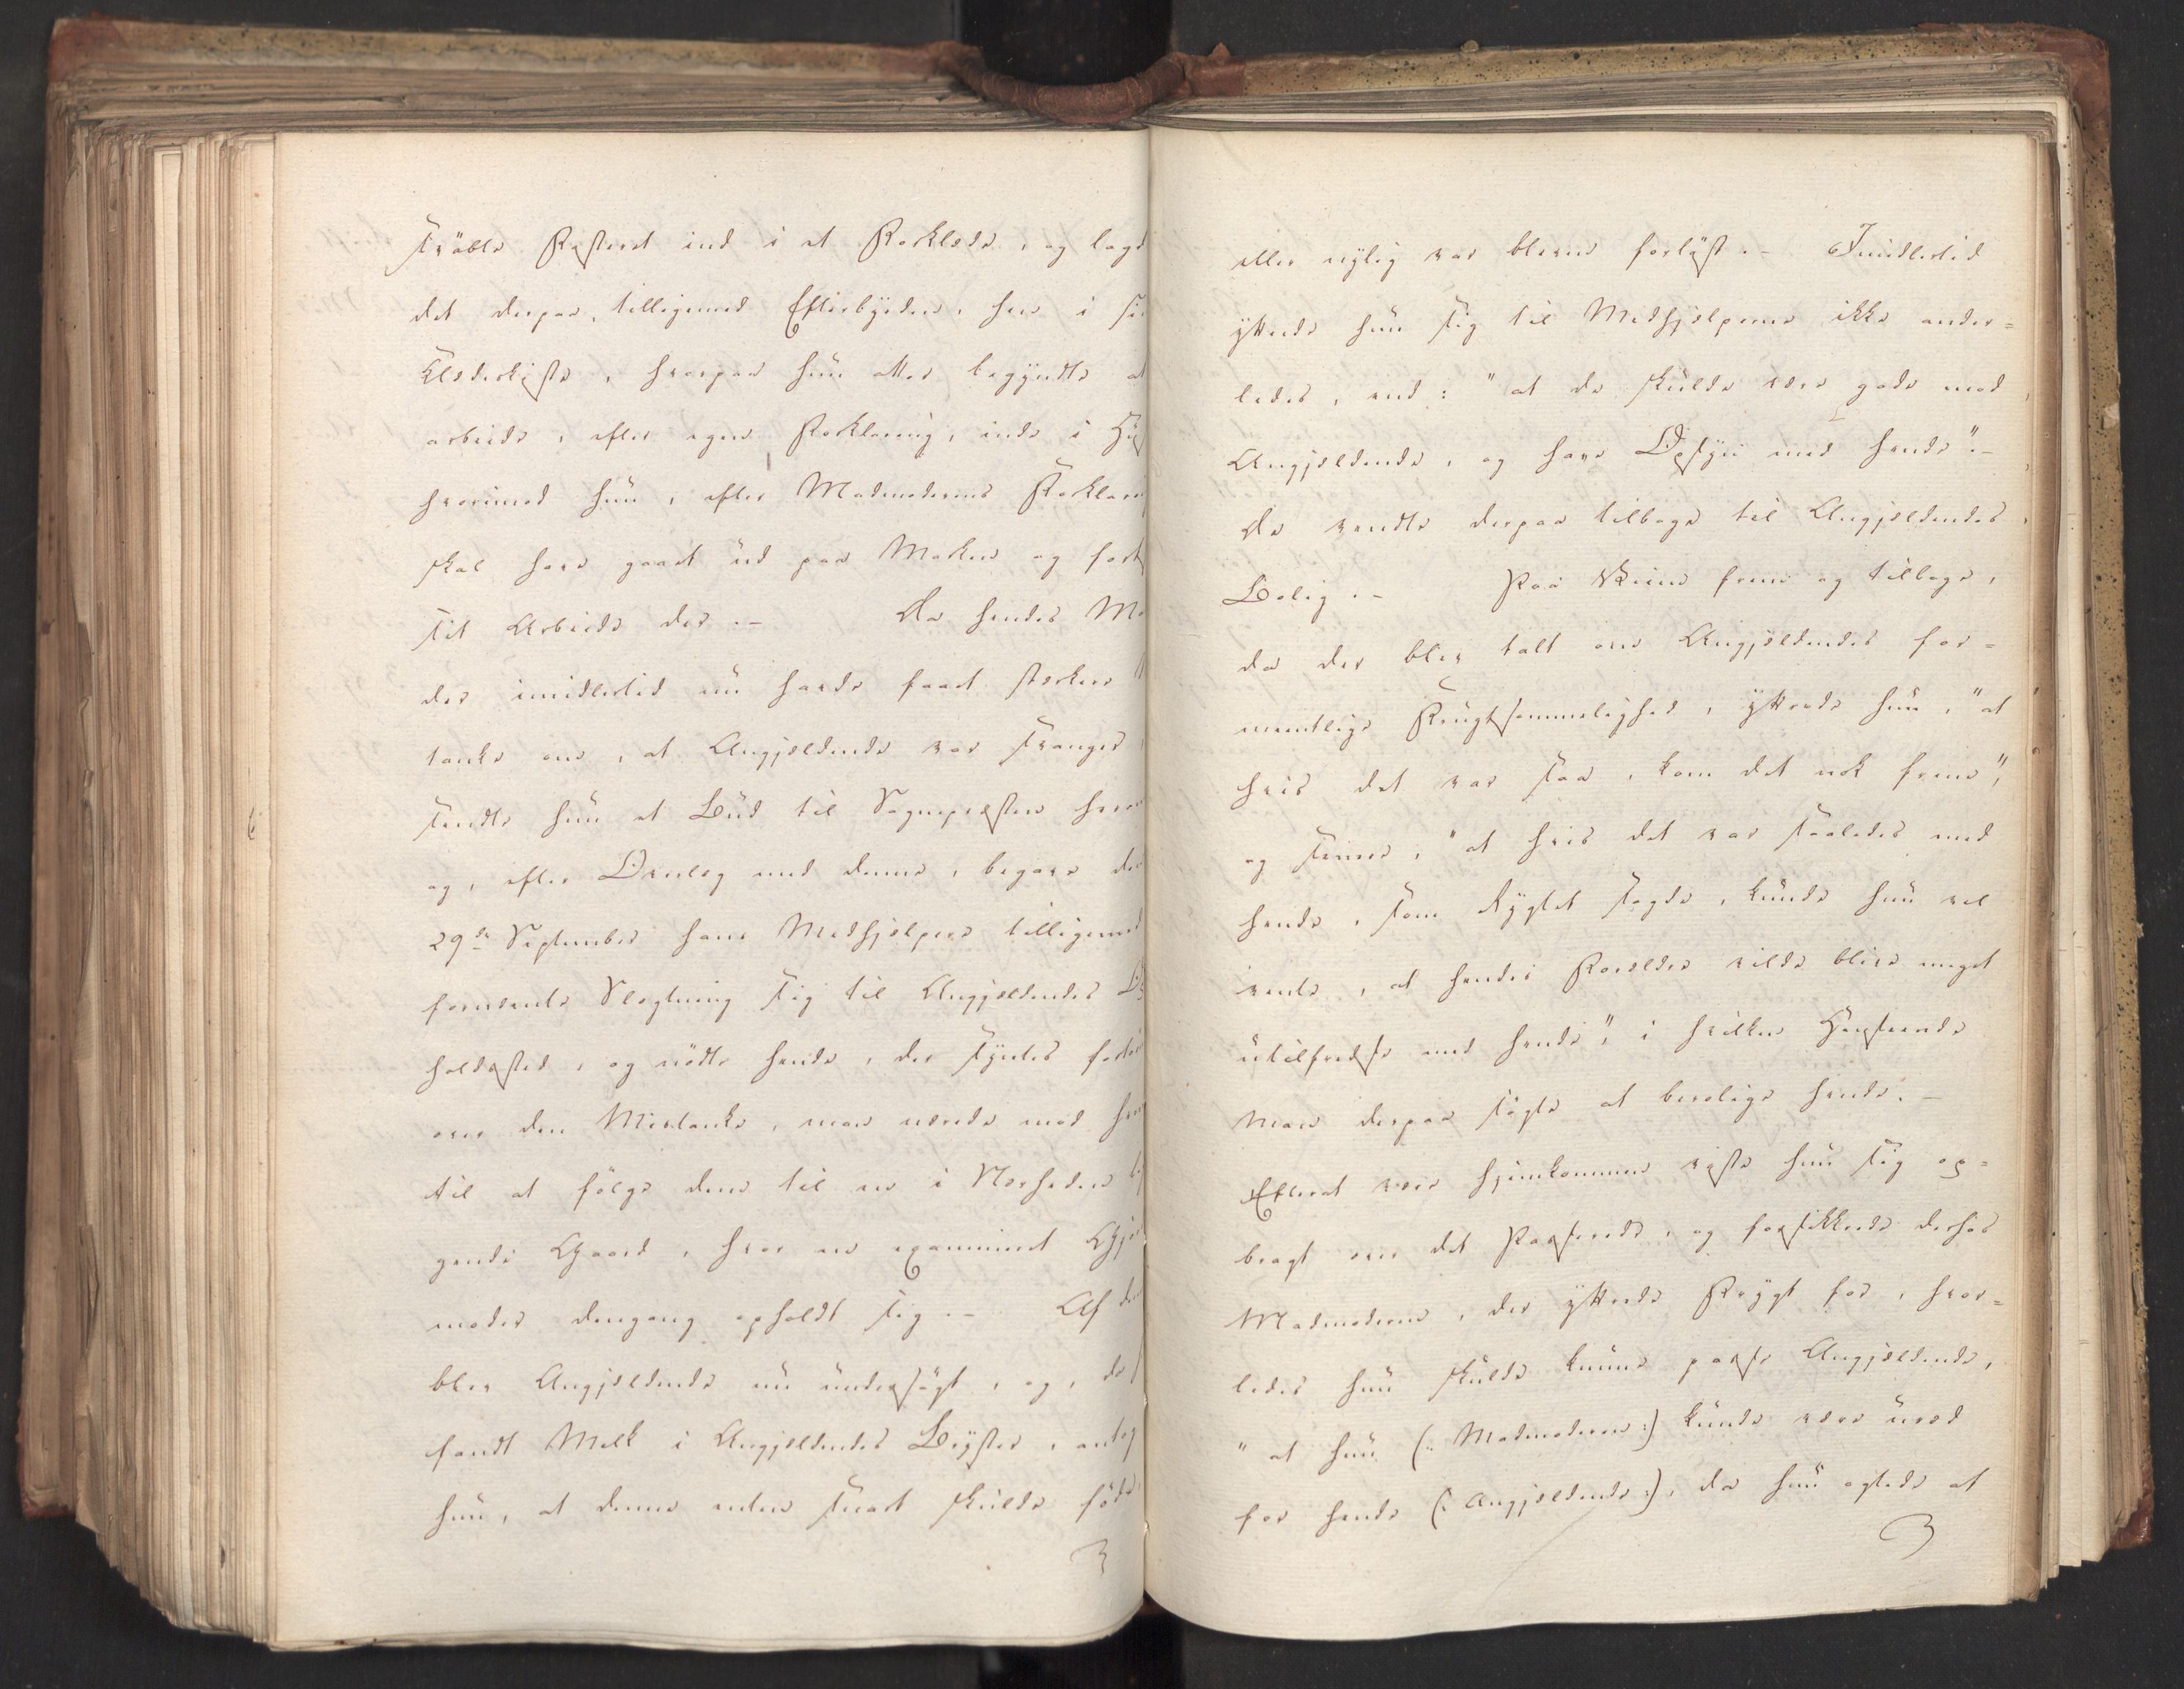 svøbte Fosteret ind i et Forklæde, og lagd
det derpaa, tilligemed Efterbyrden, hen i sin
Klædekiste, hvorpaa hun atter begyndte at
arbeide, efter egen Forklaring, inde i Huus
hvorimod hun, efter Madmoderens Forklari
skal have gaaet ud paa Marken og forts
sit Arbeide der.- Da hendes Ma
der imidlertid nu havde faaet stærkere M
tanke om, at Angjeldende var svanger,
sendte hun et Bud til Sognepræsten her
og, efter Overlæg med denne, begave den
29de September hans Medhjelpere tilligemed
fornævnte Slægtning sig til Angjeldendes Op
holdssted, og nødte hende, der syntes fortør
over den Mistanke, man nærede mod hen
til at følge dem til en i Nærheden lig
gende Gaard, hvor en examineret Gjor
moder dengang opholdt sig.- Af den
blev Angjeldende nu undersøgt, og, da h
fandt Melk i Angjeldendes Bryster, antog
hun, at denne enten snart skulde føde
eller nylig var bleven forløst.- Imidlertid
yttrede hun sig til Medhjelperne ikke ander=
ledes, end: "at de skulde være gode mod
Angjeldende, og have Opsyn med hende".-
De vendte derpaa tilbage til Angjeldendes
Bolig.- Paa Veien frem og tilbage,
da der blev talt om Angjeldendes for=
meentlige Frugtsommelighed, yttrede hun, "at
hvis det var saa, kom det nok frem",
og senere, "at hvis det var saaledes med
hende, som Rygtet sagde, kunde hun vel
vente, at hendes Forældre vilde blive meget
utilfredse med hende", i hvilken Henseende
man derpaa søgte at berolige hende.-
Efterat være hjemkommen viste hun sig op=
bragt over det Passerede, og forsikkrede derhos
Madmoderen, der yttrede Frygt for, hvor=
ledes hun skulde kunne passe Angjeldende,
"at hun (: Madmoderen :) kunde være uræd
for hende (: Angjeldende :), da hun agtede at